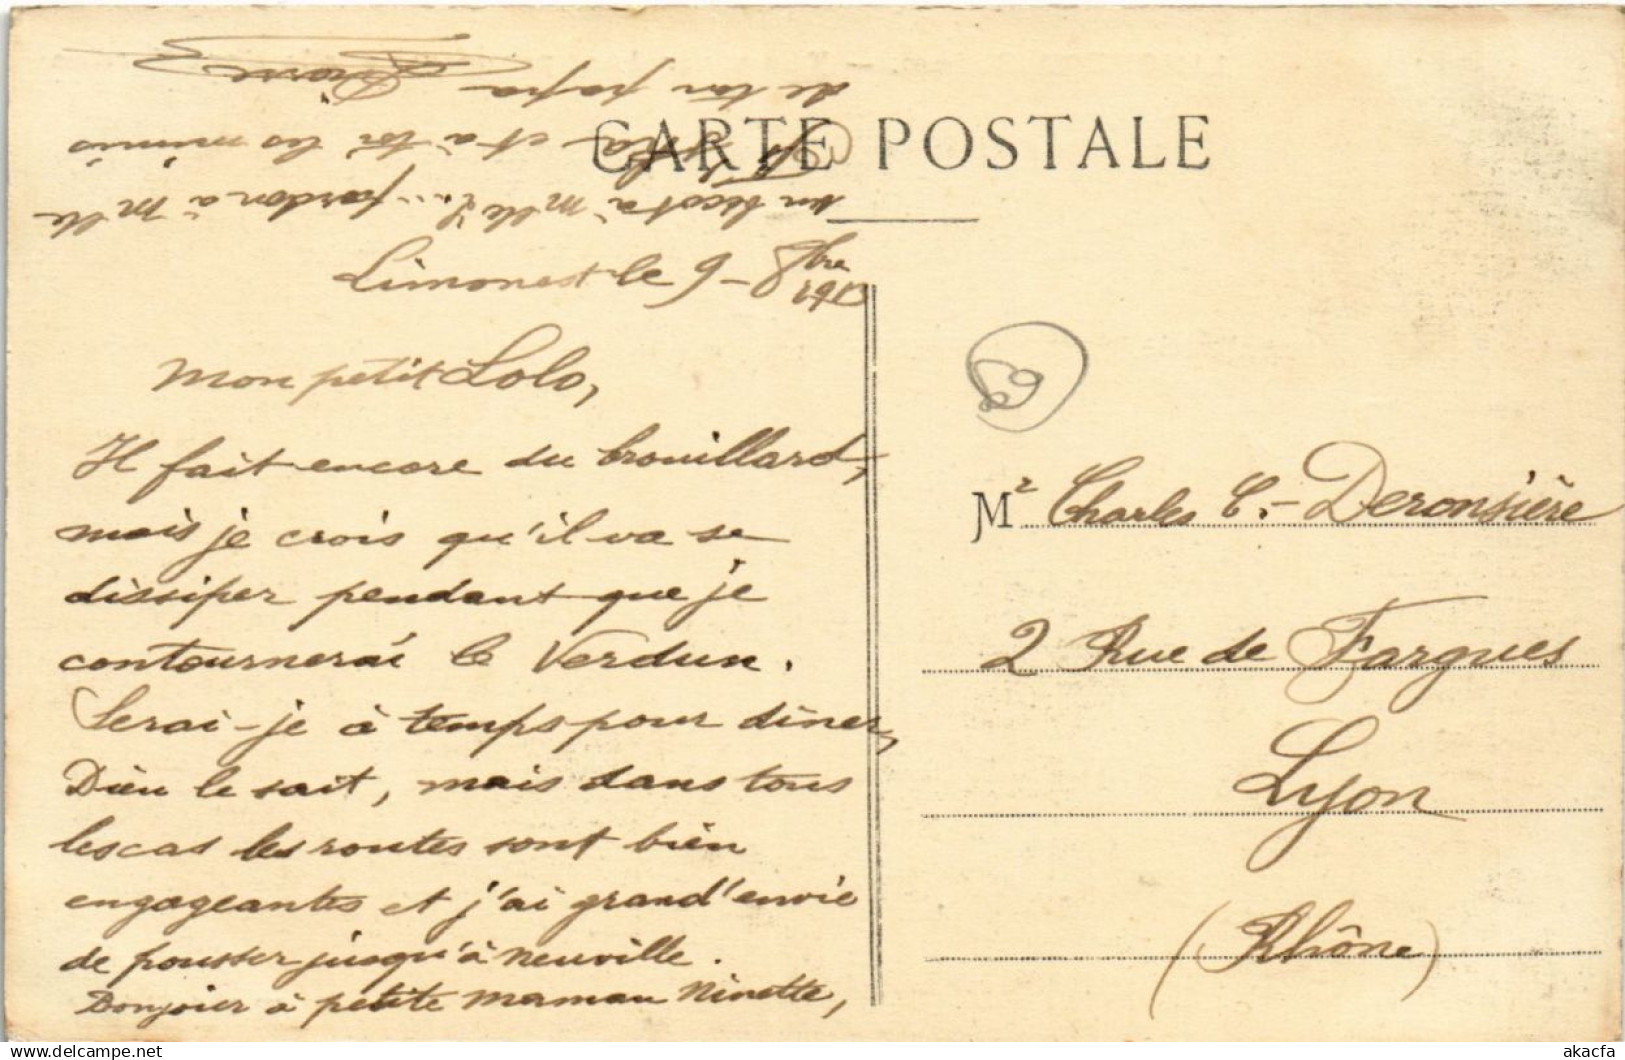 CARTE POSTALE
Limonest le 9 - 8bre
Mon petit Lolo,
Il fait encore du brouillard,
mais je crois qu'il va se
dissiper pendant que je
contournerai le Verdun.
Serai-je à temps pour dîner,
Dieu le sait, mais dans tous
les cas les routes sont bien
engageantes et j'ai grand'envie
de pousser jusqu'à Neuville.
Bonjour à petite maman Ninette,
un bécot à Mlle Y... pardon à Mlle
et à toi les mimis
de ton papa
Mr Charles C. - Deronsière
2 Rue de Fargues
Lyon
(Rhône)
akacfa